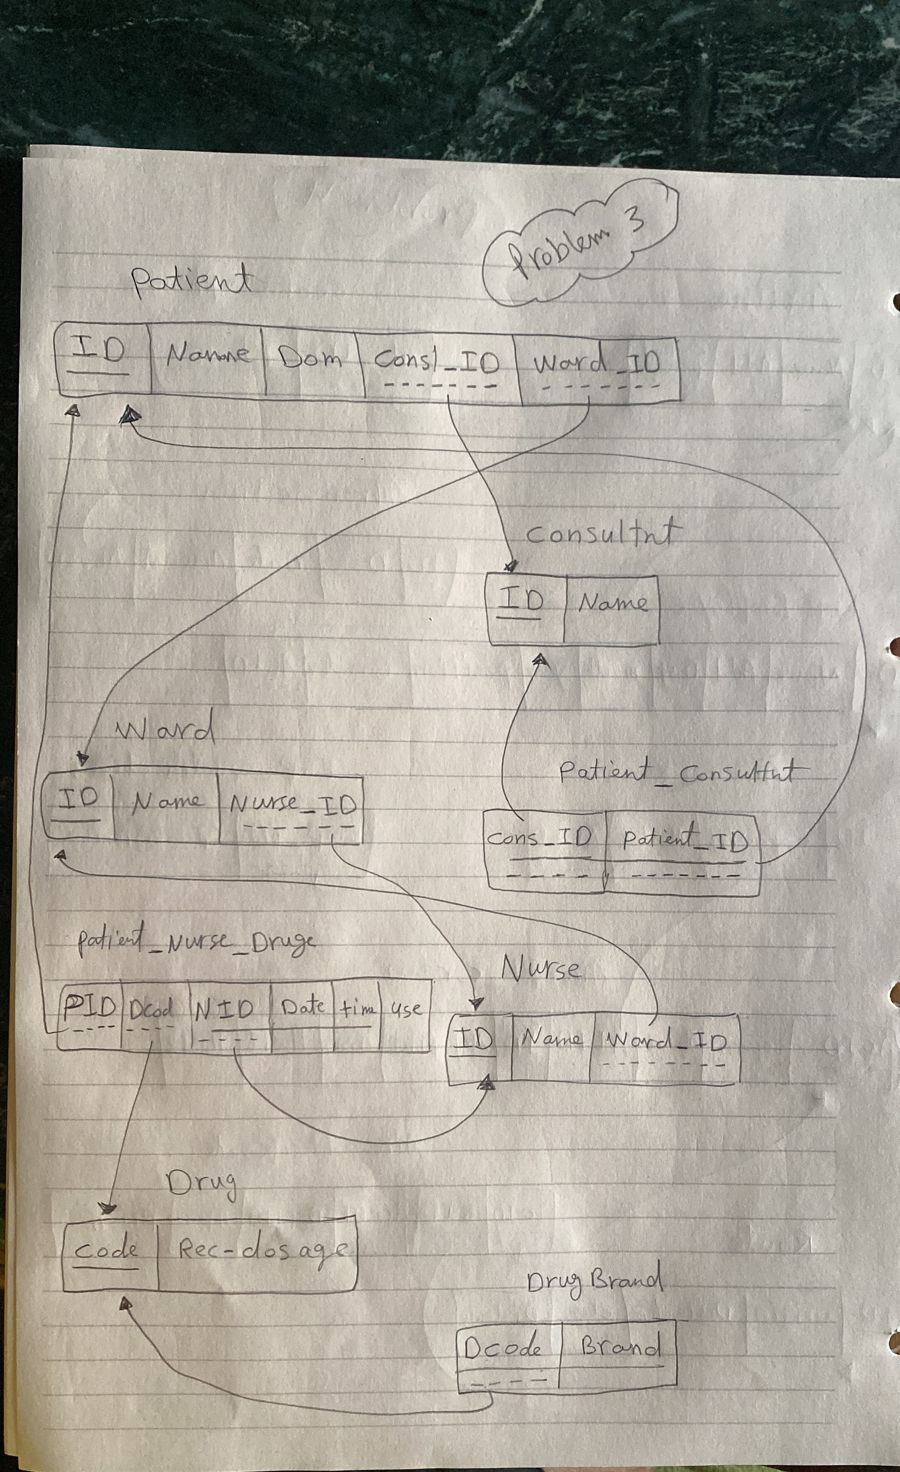 Problem 3
Patient
ID Name Dom Cons1_ID Ward_ID
Consultnt
ID Name
Ward
ID Name Nurse_ID
Patient_Consultnt
Cons_ID Patient_ID
Patient_Nurse_Druge
PID Dcod NID Date tim use
Nurse
ID Name Ward_ID
Drug
Code Rec-dosage
Drug Brand
Dcode Brand